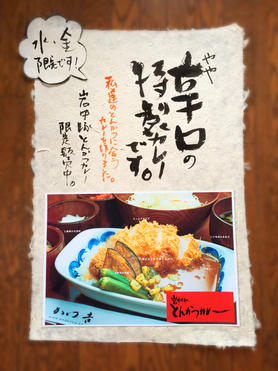 水、金
限定です!
やや
辛口の
特製カレー
です。
私達のとんかつに合う
カレーを作りました。
岩中豚とんかつカレー
限定販売中。
とんかつカレー